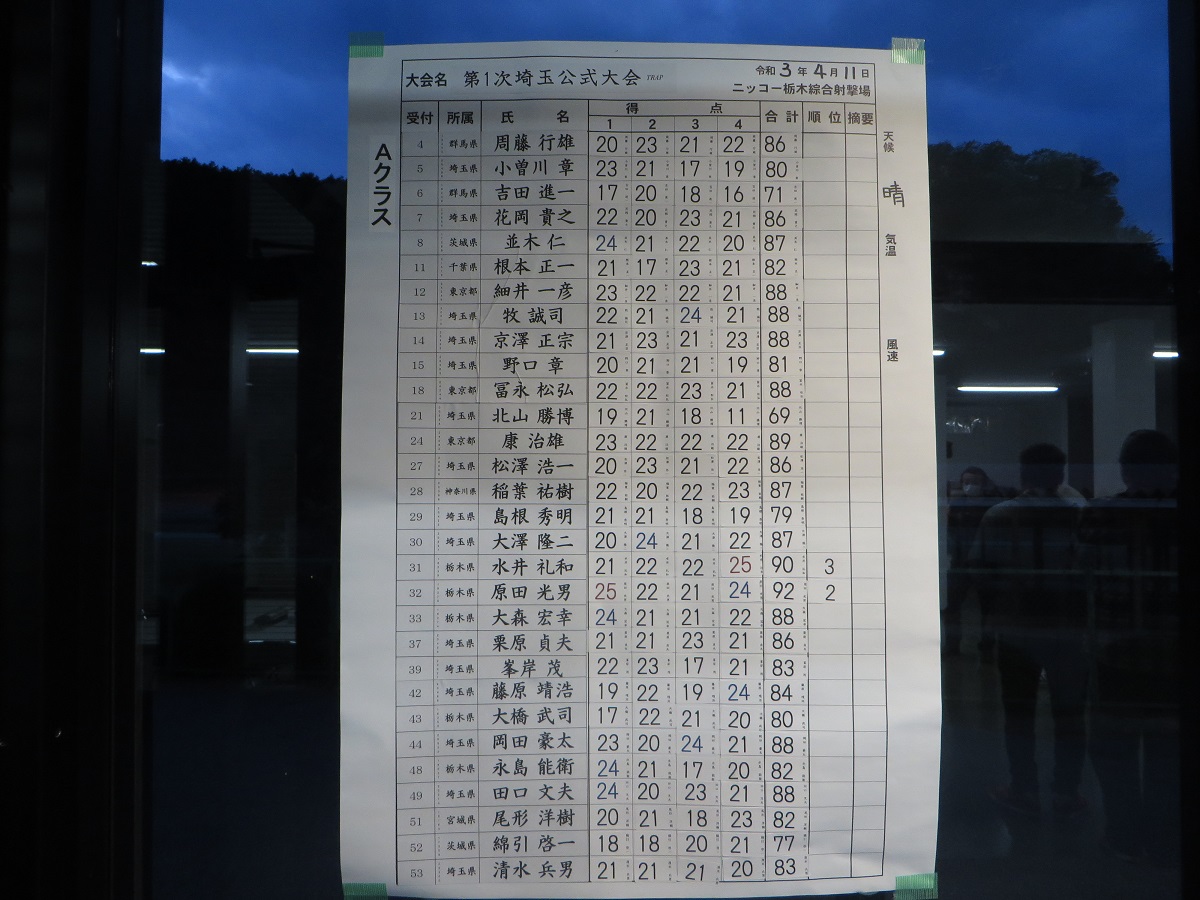 大会名 第1次埼玉公式大会 TRAP
令和 3 年 4 月 11 日
ニッコー栃木綜合射撃場
受付 所属 氏 名 得 点 合 計 順 位 摘要
1 2 3 4
Aクラス
4 群馬県 周藤 行雄 20 23 21 22 86
5 埼玉県 小曽川 章 23 21 17 19 80
6 群馬県 吉田 進一 17 20 18 16 71
7 埼玉県 花岡 貴之 22 20 23 21 86
8 茨城県 並木 仁 24 21 22 20 87
11 千葉県 根本 正一 21 17 23 21 82
12 東京都 細井 一彦 23 22 22 21 88
13 埼玉県 牧 誠司 22 21 24 21 88
14 埼玉県 京澤 正宗 21 23 21 23 88
15 埼玉県 野口 章 20 21 21 19 81
18 東京都 冨永 松弘 22 22 23 21 88
21 埼玉県 北山 勝博 19 21 18 11 69
24 東京都 康 治雄 23 22 22 22 89
27 埼玉県 松澤 浩一 20 23 21 22 86
28 神奈川県 稲葉 祐樹 22 20 22 23 87
29 埼玉県 島根 秀明 21 21 18 19 79
30 埼玉県 大澤 隆二 20 24 21 22 87
31 栃木県 水井 礼和 21 22 22 25 90 3
32 栃木県 原田 光男 25 22 21 24 92 2
33 栃木県 大森 宏幸 24 21 21 22 88
37 埼玉県 栗原 貞夫 21 21 23 21 86
39 埼玉県 峯岸 茂 22 23 17 21 83
42 埼玉県 藤原 靖浩 19 22 19 24 84
43 栃木県 大橋 武司 17 22 21 20 80
44 埼玉県 岡田 豪太 23 20 24 21 88
48 栃木県 永島 能衛 24 21 17 20 82
49 埼玉県 田口 文夫 24 20 23 21 88
51 宮城県 尾形 洋樹 20 21 18 23 82
52 茨城県 綿引 啓一 18 18 20 21 77
53 埼玉県 清水 兵男 21 21 21 20 83
天候
晴
気温
風速